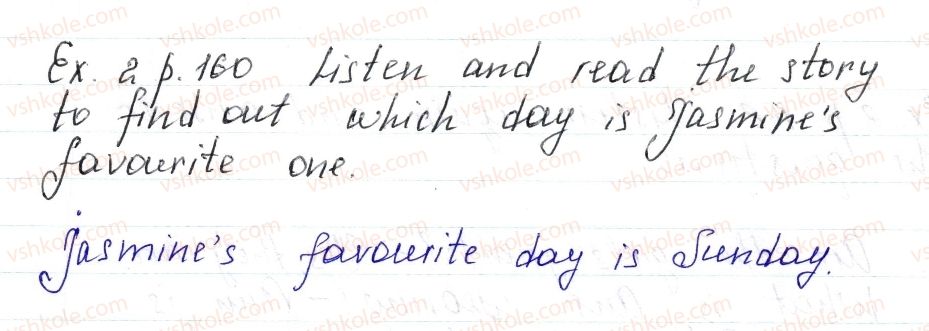 Ex. 2 p. 160 Listen and read the story
to find out which day is Jasmine's
favourite one.
Jasmine's favourite day is Sunday.